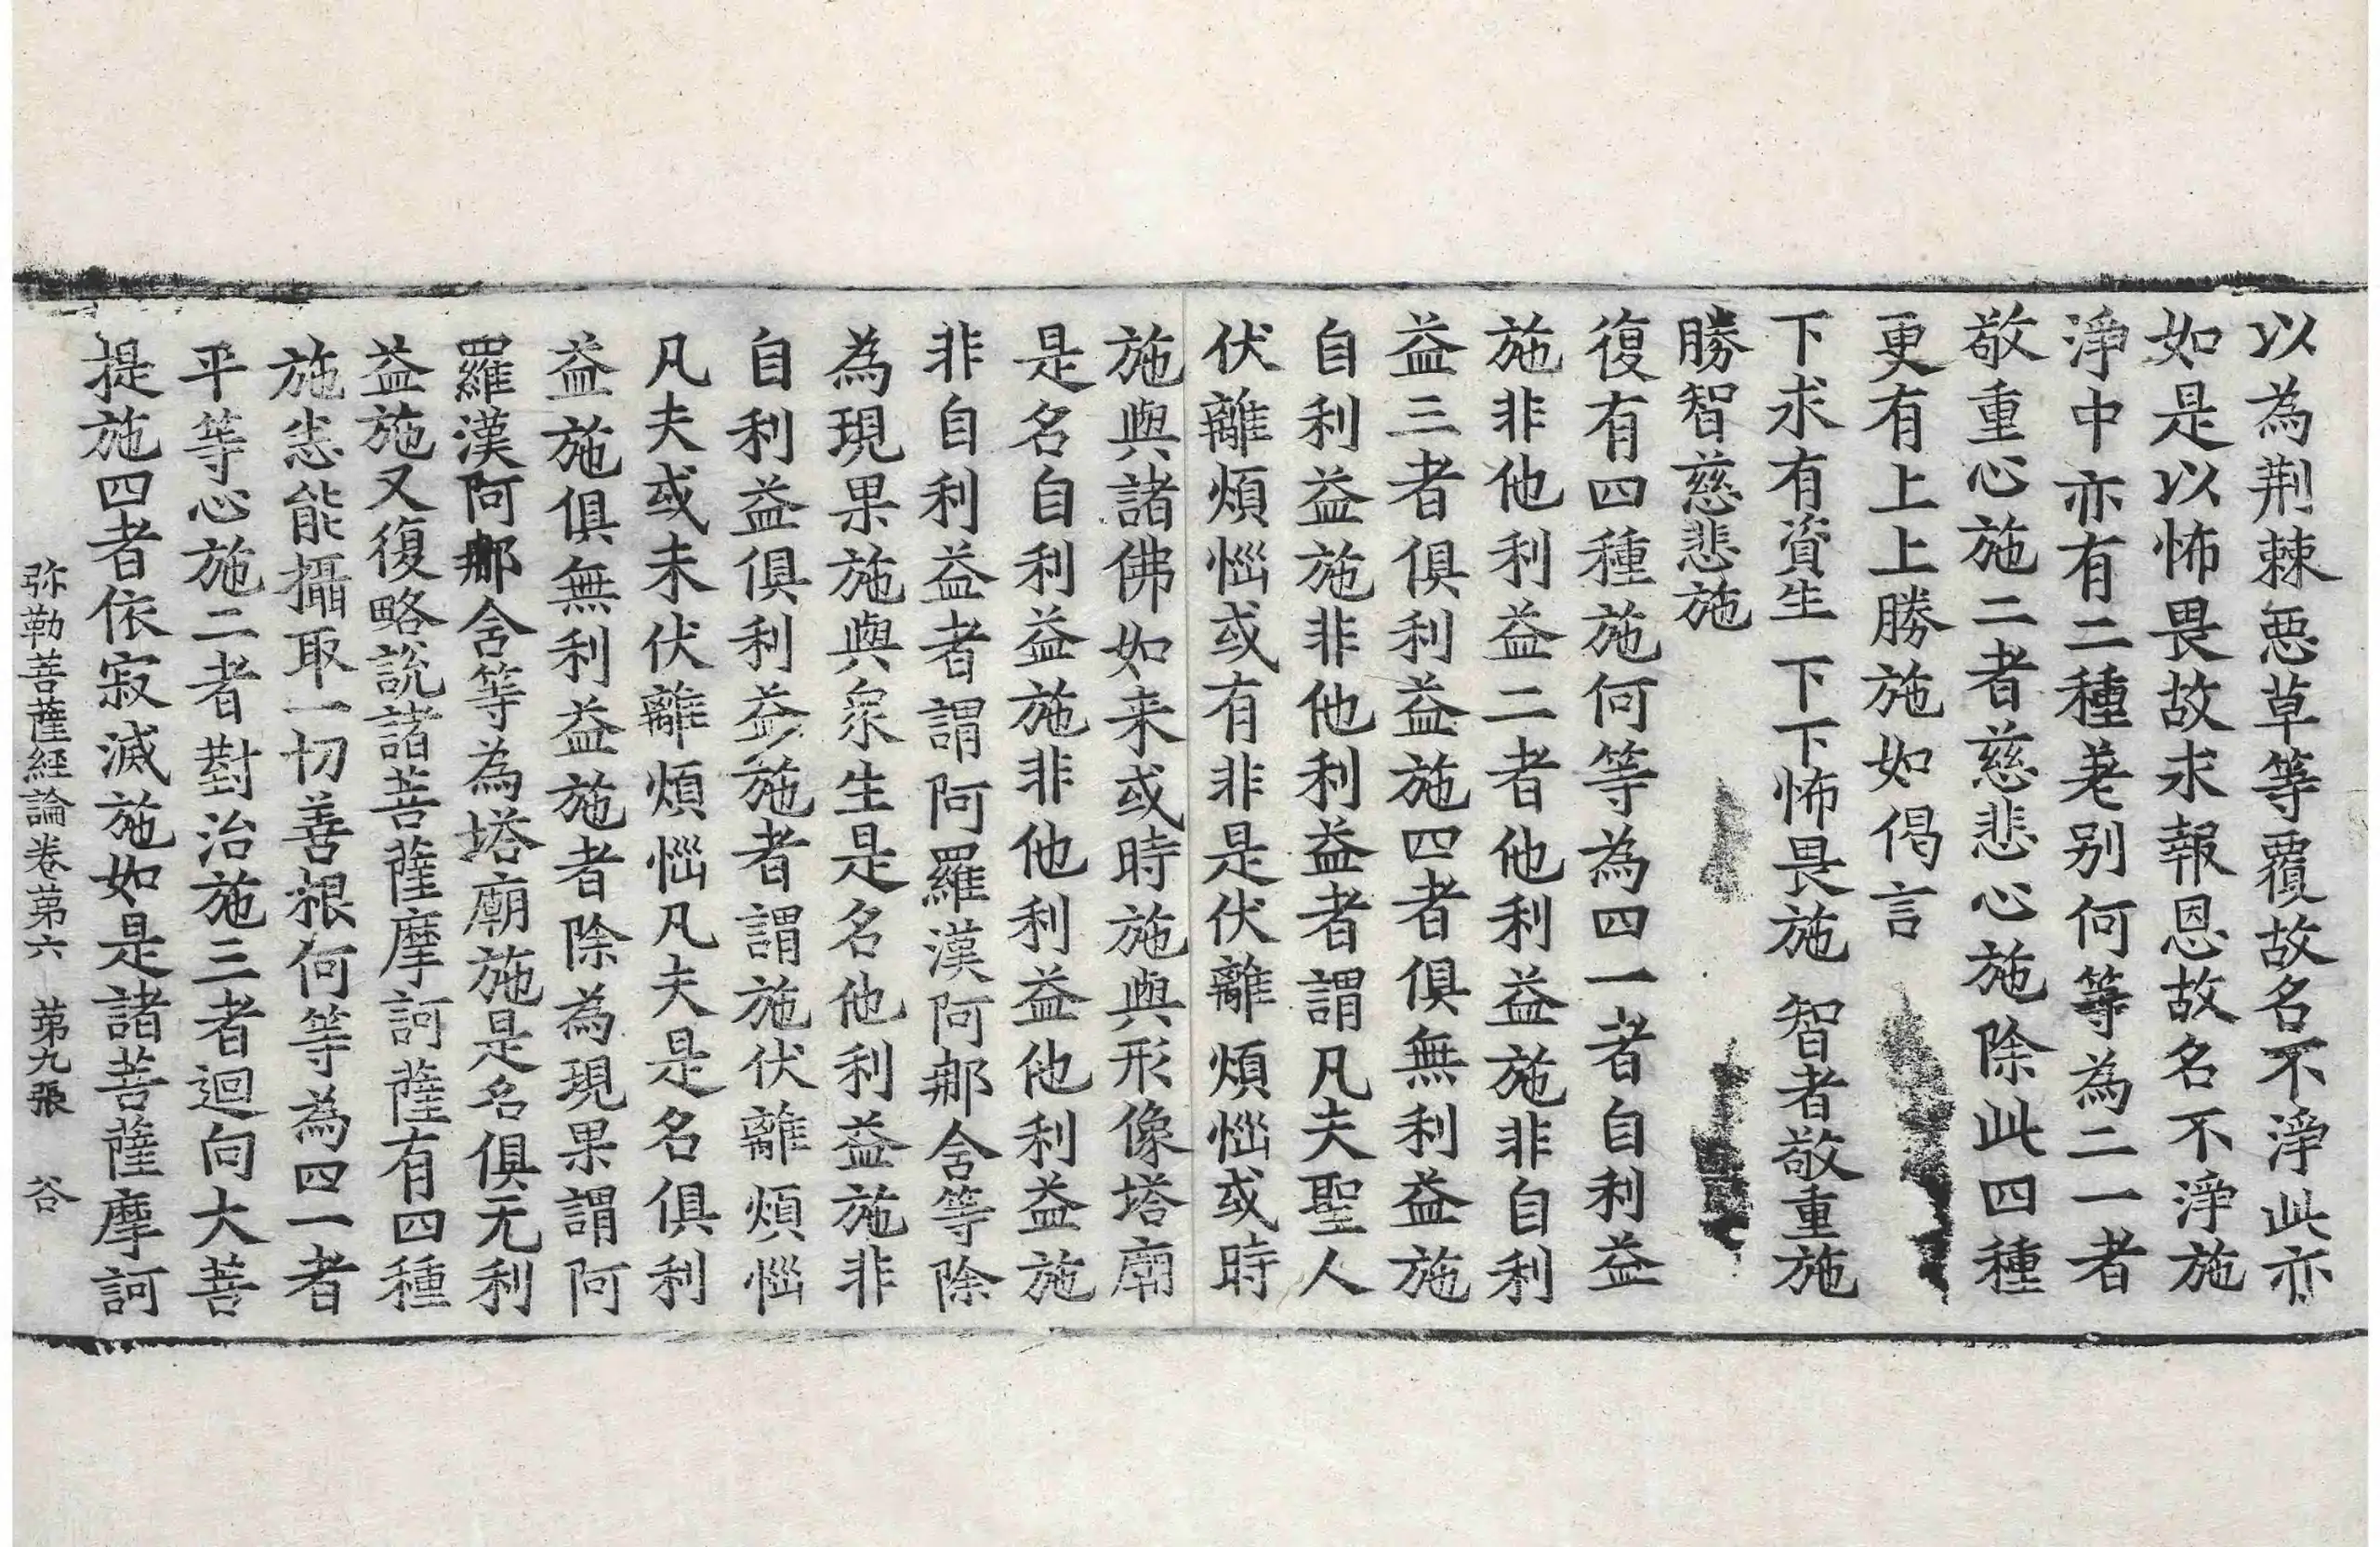 以為荆棘惡草等覆故名不淨此亦
如是以怖畏故求報恩故名不淨施
淨中亦有二種差别何等為二一者
敬重心施二者慈悲心施除此四種
更有上上勝施如偈言
下求有資生　下下怖畏施　智者敬重施
勝智慈悲施
復有四種施何等為四一者自利益
施非他利益二者他利益施非自利
益三者俱利益施四者俱無利益施
自利益施非他利益者謂凡夫聖人
伏離煩惱或有非是伏離煩惱或時
施與諸佛如来或時施與形像塔廟
是名自利益施非他利益他利益施
非自利益者謂阿羅漢阿那舍等除
為現果施與衆生是名他利益施非
自利益俱利益施者謂施伏離煩惱
凡夫或未伏離煩惱凡夫是名俱利
益施俱無利益施者除為現果謂阿
羅漢阿那舍等為塔廟施是名俱无利
益施又復略説諸菩薩摩訶薩有四種
施恙能攝取一切善根何等為四一者
平等心施二者對治施三者迴向大菩
提施四者依寂滅施如是諸菩薩摩訶
弥勒菩薩經論卷第六　第九張　谷